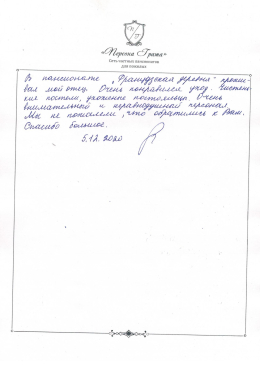 «Персона Грата»
Сеть частных пансионатов
для пожилых
В пансионате „Французская деревня" прожи-
вал мой отец. Очень понравился уход. Чистень-
кие постели, ухоженные постояльцы. Очень
внимательный и неравнодушный персонал.
Мы не пожалели, что обратились к Вам.
Спасибо большое.
5.12.2020